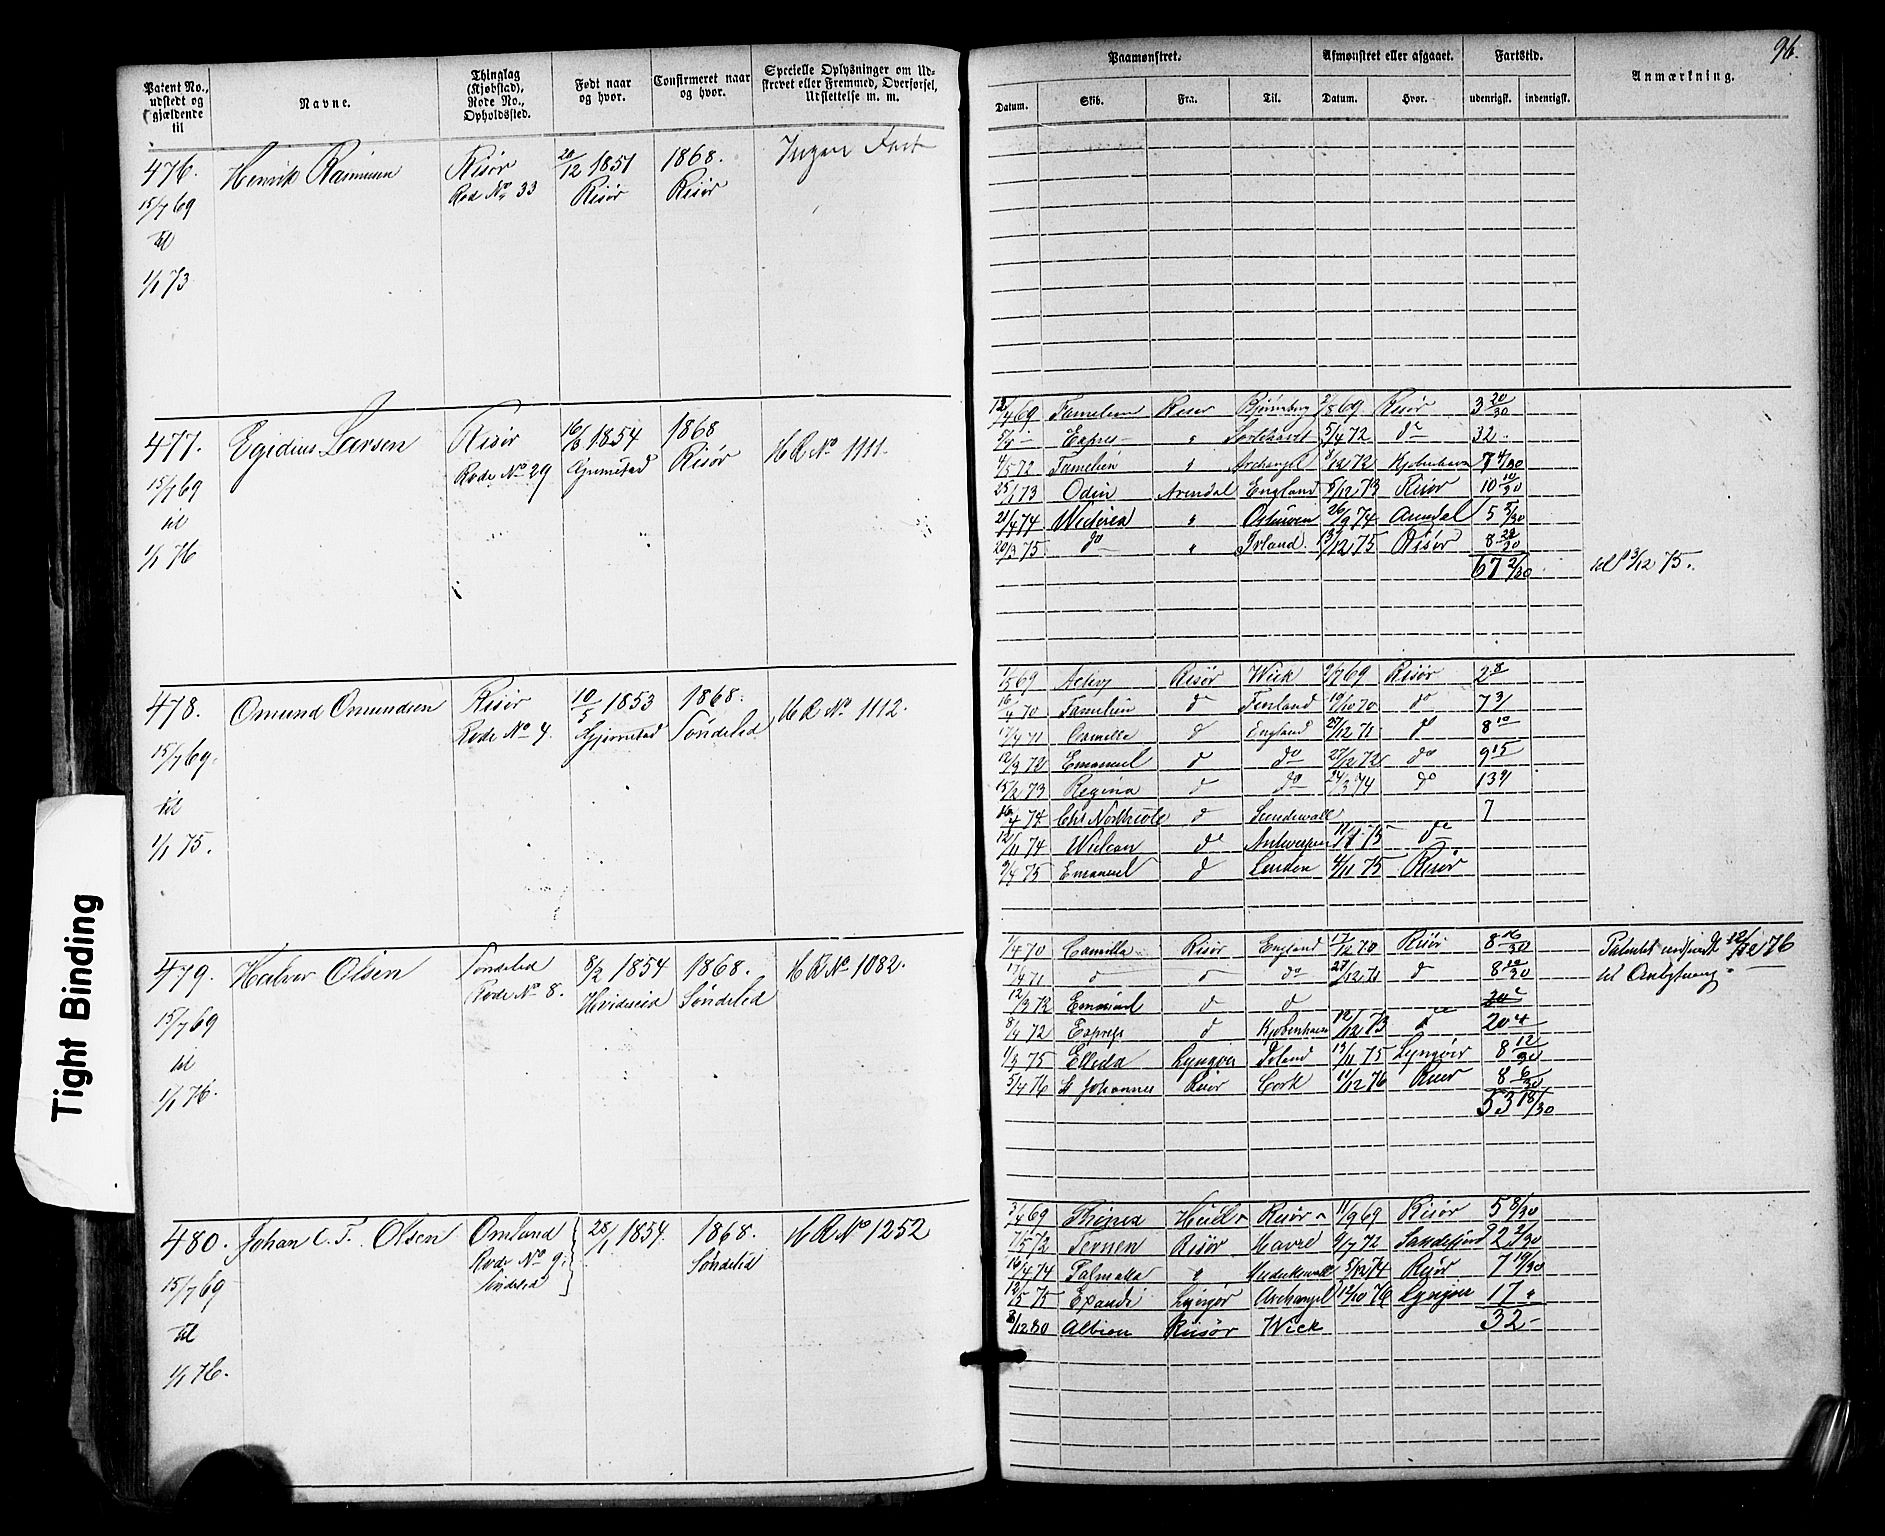 96.
Patent No., udstedt og gjældende til
Navne.
Thinglag (Kjøbstad), Rode No., Opholdssted.
Født naar og hvor.
Confirmeret naar og hvor.
Specielle Oplysninger om Udskrevet eller Fremmed, Overførsel, Udslettelse m. m.
Paamønstret.
Afmønstret eller afgaaet.
Fartstid.
Anmærkning.
Datum. Skib. Fra. Til. Datum. Hvor. udenrigsk. indenrigsk.
476. Henrik Rasmusen Risør 20/12 1851 1868. Ingen Fart
15/7 69 Rode No. 33 Risør Risør
til
1/1 73
477. Egidius Larsen Risør 16/8 1854 1868 HR No 1111.
15/7 69 Rode No 29 Gjernestad Risør
til
1/1 76
12/4 69 Familien Risør Bjørneborg 2/8 69 Risør 3 20/30
Expres " 5/4 72 do 32.
4/5 72 Familien " Archangel 8/12 72 Kjøbenhavn 7 4/30
25/1 73 Odin Arendal England 5/12 73 Risør 10 10/30
21/4 74 " 26/9 74 Arendal 5 5/30
20/3 75 do " Irland 13/12 75 Risør 8
67 2/30 til 13/12 75.
478. Omund Omundsen Risør 10/5 1853 1868. HR No 1112.
15/7 69. Rode No 4. Gjernestad Søndeled
til
1/1 75.
1/5 69 Activ Risør Wick 9/7 69 Risør 2 8
16/4 70 Familien do Finland 19/10 70 do 7 3
17/4 71 Camilla d England 27/12 71 do 8 10
12/3 72 Emanuel d do 27/12 72 do 9 15
15/2 73 Regina d do 24/3 74 do 13 9
16/4 74 d Sundswall 7
12/11 74 Wulcan do Antwerpen 75 do
9/4 75 Emanuel d London 4/11 75 Risør
479. Halvor Olsen Søndeled 8/2 1854 1868. HR No 1082.
15/7 69 Rode No 8. Hvideseid Søndeled
til
1/1 76.
1/4 70 Camilla Risør England 17/12 70 Risør 8 16/30 Patentet indsendt 12/12 76
17/4 71 d d do 27/12 71 d 8 10/30 til
12/3 72 Emanuel d d
8/4 72 Express d Kjøbenhavn 12/12 73 do 20 4
1/3 75 Elleda Lyngør Irland 13/11 75 Lyngør 8 12/30
5/4 76 St Johannes Risør Cork 11/12 76 Risør 8 6/30
53 18/30
480. Johan C. T. Olsen Omland 28/1 1854 1868. HR No 1252
15/7 69 Rode No 9. Søndeled
til Søndeled
1/1 76.
3/4 69 Risør 11/9 69 Risør 5 8/30
7/5 72 Ternen Risør Havre 9/7 72 Sandefjord 2 2/30
16/4 74 Palmatta " 5/12 74 Risør 7 19/30
12/5 75 Lyngør Archangel 12/10 76 Lyngør 17 "
3/12 80 Albion Risør Wick 32 -
Tight Binding